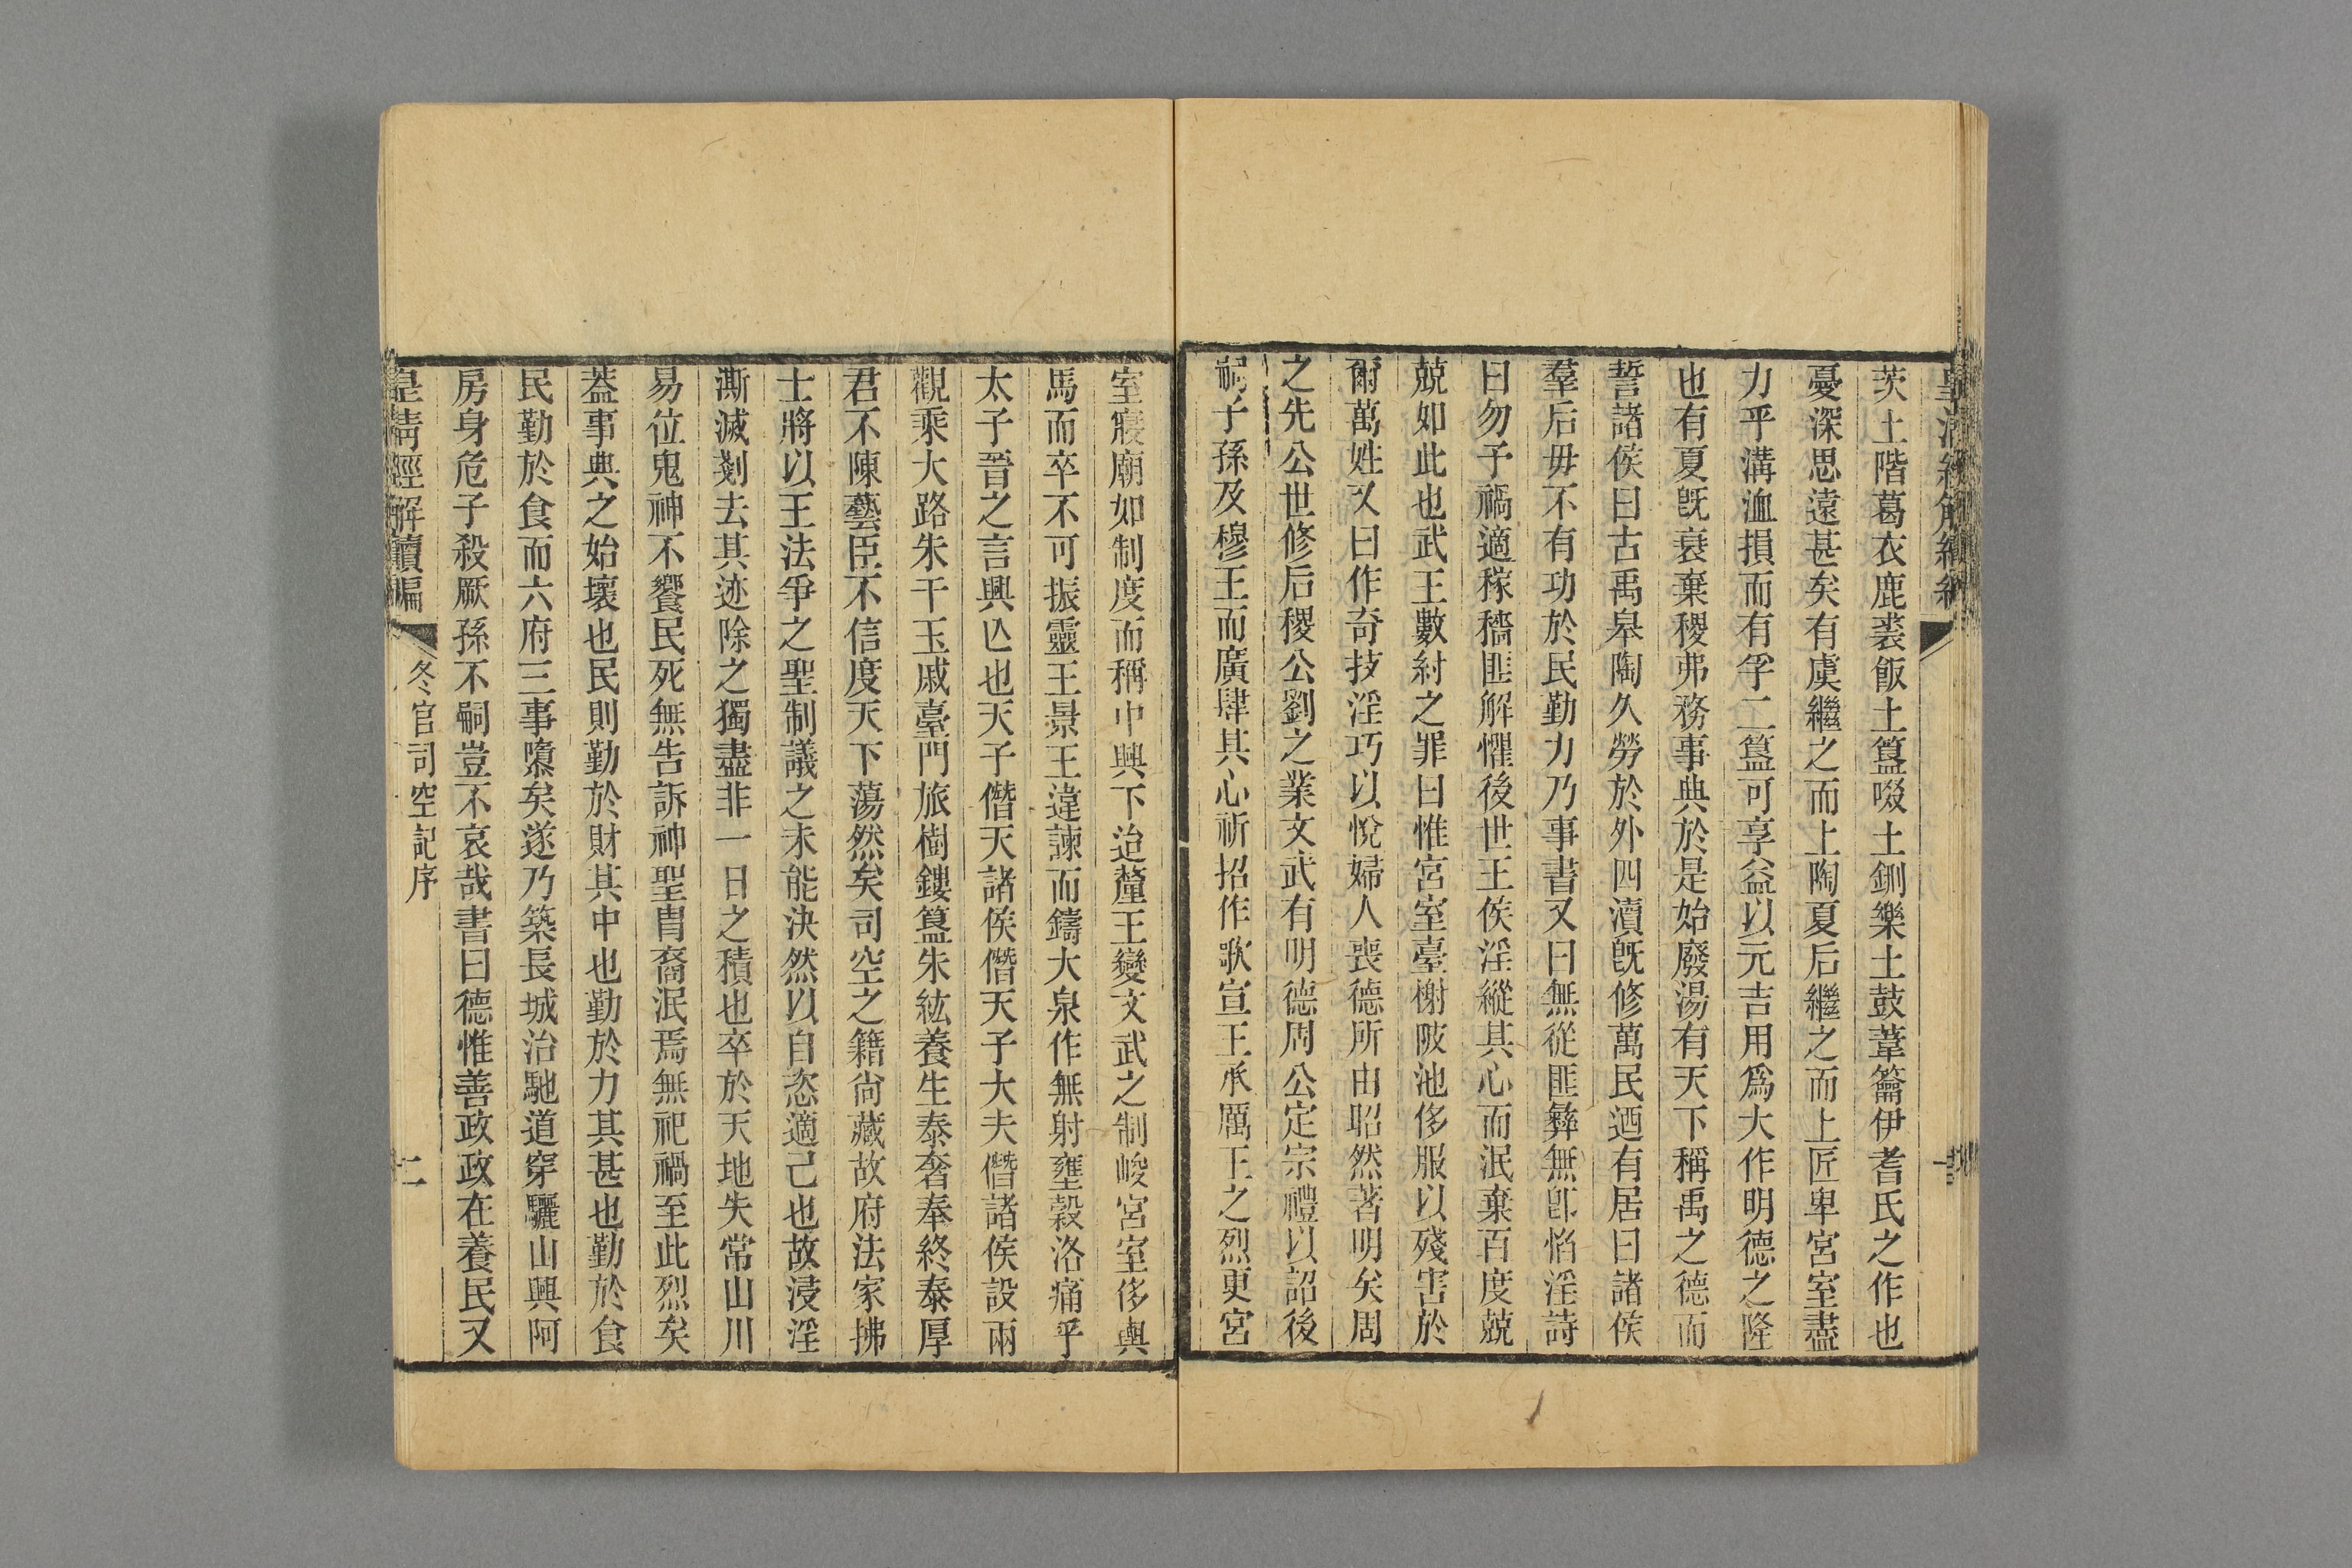 皇清經解續編
茨土階葛衣鹿裘飯土簋啜土鉶樂土鼓葦籥伊耆氏之作也
憂深思遠甚矣有虞繼之而上陶夏后繼之而上匠卑宮室盡
力乎溝洫損而有孚二簋可享益以元吉用爲大作明德之隆
也有夏旣衰棄稷弗務事典於是始廢湯有天下稱禹之德而
誓諸侯曰古禹皋陶久勞於外四瀆旣修萬民迺有居曰諸侯
羣后毋不有功於民勤力乃事書又曰無從匪彝無卽慆淫詩
曰勿予禍適稼穡匪解懼後世王侯淫縱其心而泯棄百度兢
兢如此也武王數紂之罪曰惟宮室臺榭陂池侈服以殘害於
爾萬姓又曰作奇技淫巧以悅婦人喪德所由昭然著明矣周
之先公世修后稷公劉之業文武有明德周公定宗禮以詔後
嗣子孫及穆王而廣肆其心祈招作歌宣王承厲王之烈更宮
室寢廟如制度而稱中興下迨釐王變文武之制峻宮室侈輿
馬而卒不可振靈王景王違諫而鑄大泉作無射壅穀洛痛乎
太子晉之言興亾也天子僭天諸侯僭天子大夫僭諸侯設兩
觀乘大路朱干玉戚臺門旅樹鏤簋朱紘養生泰奢奉終泰厚
君不陳藝臣不信度天下蕩然矣司空之籍尙藏故府法家拂
士將以王法爭之聖制議之未能決然以自恣適己也故浸淫
澌滅剗去其迹除之獨盡非一日之積也卒於天地失常山川
易位鬼神不饗民死無告訴神聖冑裔泯焉無祀禍至此烈矣
葢事典之始壞也民則勤於財其中也勤於力其甚也勤於食
民勤於食而六府三事隳矣遂乃築長城治馳道穿驪山興阿
房身危子殺厥孫不嗣豈不哀哉書曰德惟善政政在養民又
皇淸經解續編
冬官司空記序
二